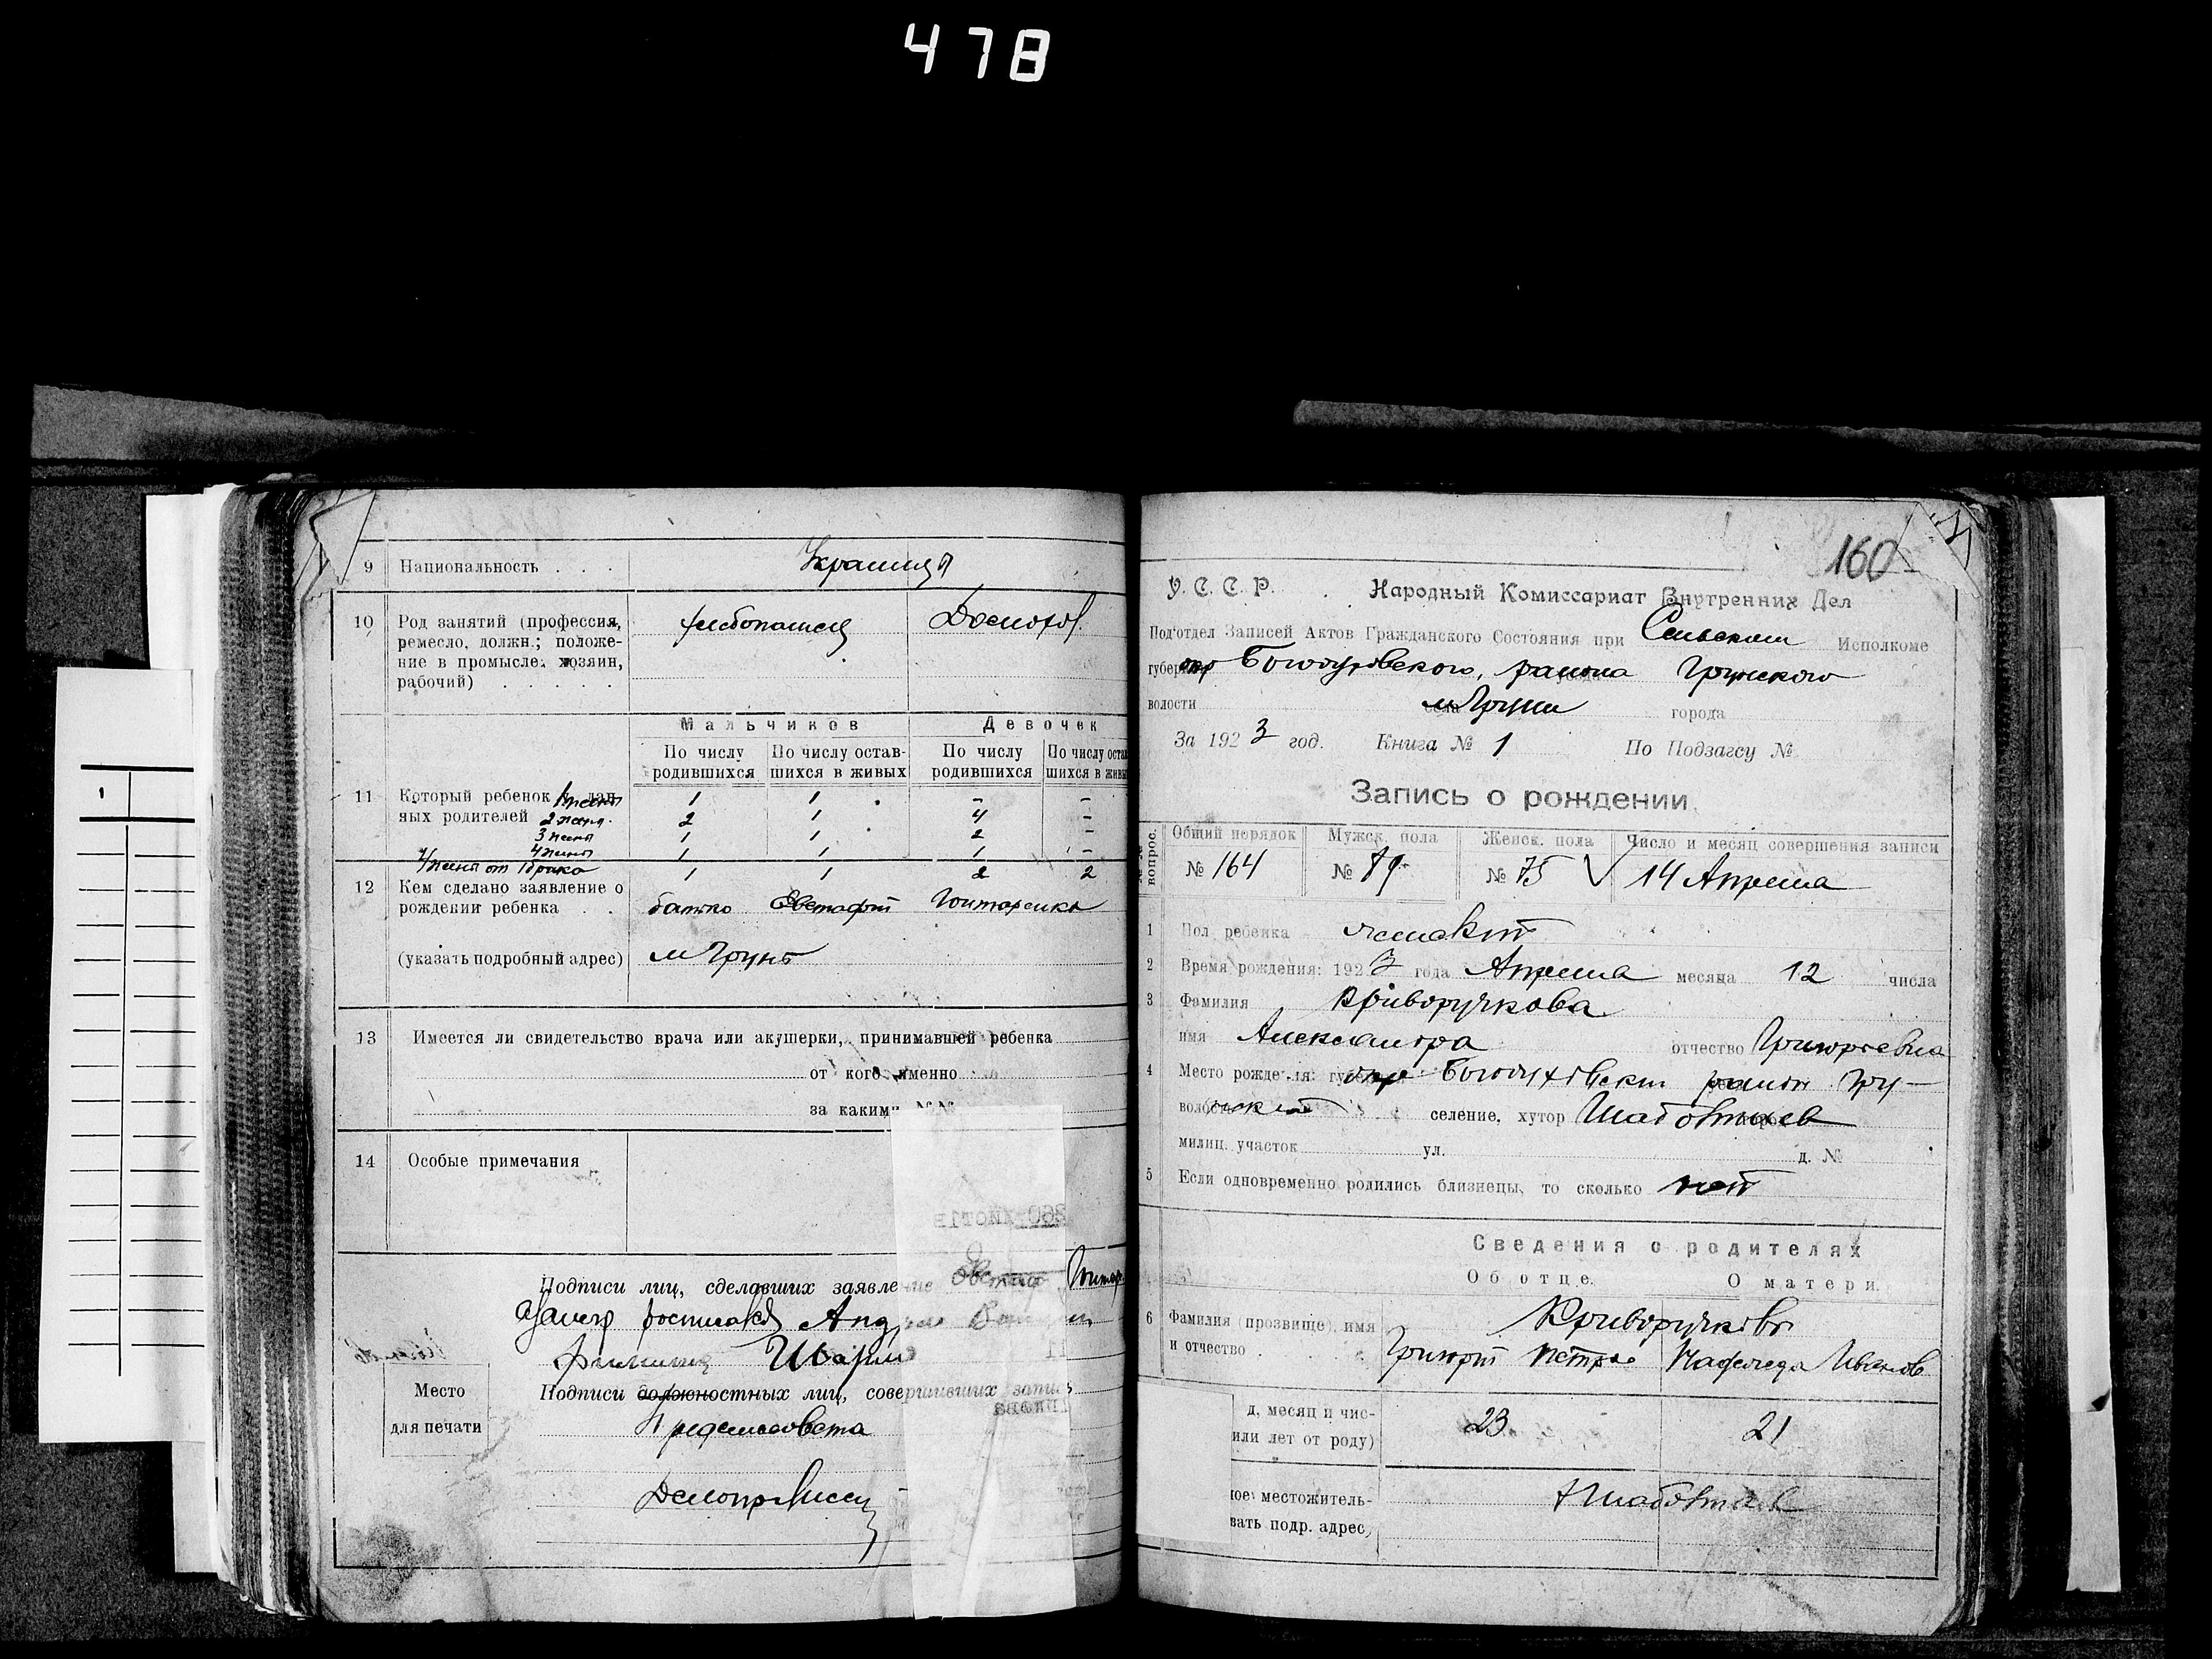 478
9 Национальность . . . Украинця
10 Род занятий (профессия, хлебопашец Домохоз.
ремесло, должн.; положе-
ние в промысле: хозяин,
рабочий) . . . . .
Мальчиков Девочек
По числу родившихся По числу оставшихся в живых По числу родившихся По числу остав шихся в живы
11 Который ребенок у дан- 1 жена 1 1 - -
ных родителей 2 жена. 2 1 4 -
3 жена 1 1 2 -
4 жена 1 1 1 -
4 жена от 1 брака 1 1 2 2
12 Кем сделано заявление о
рождении ребенка . . батько Евстафий
(указать подробный адрес) м Грунь
13 Имеется ли свидетельство врача или акушерки, принимавшей ребенка
от кого именно
за какими №№
14 Особые примечания
Подписи лиц, сделавших заявление
Подписи должностных лиц, совершивших запись
Место
для печати
Предсельсовета
Делопр
160
У. С. С. Р. Народный Комиссариат Внутренних Дел
Под'отдел Записей Актов Гражданского Состояния при Сельском Исполкоме
губернии окр Богодуховского, района Грунского
волости села м Груни города
За 1923 год. Книга № 1 По Подзагсу №
Запись о рождении
№№ вопрос. Общий порядок Мужск. пола Женск. пола Число и месяц совершения записи
№ 164 № 89 № 75 14 Апреля
1 Пол ребенка
2 Время рождения: 1923 года Апреля месяца 12 числа
3 Фамилия Криворучкова
имя Александра отчество Григорьевна
4 Место рождения: губерн окр Богодуховский район Гру-
волость нский селение, хутор
милиц. участок ул. д. №
5 Если одновременно родились близнецы, то сколько нет
Сведения о родителях
Об отце. О матери.
6 Фамилия (прозвище), имя Криворучковы
и отчество . Григорий Петров Иванов
д, месяц и чис- 23 21
или лет от роду)
ное местожитель-
вать подр. адрес)